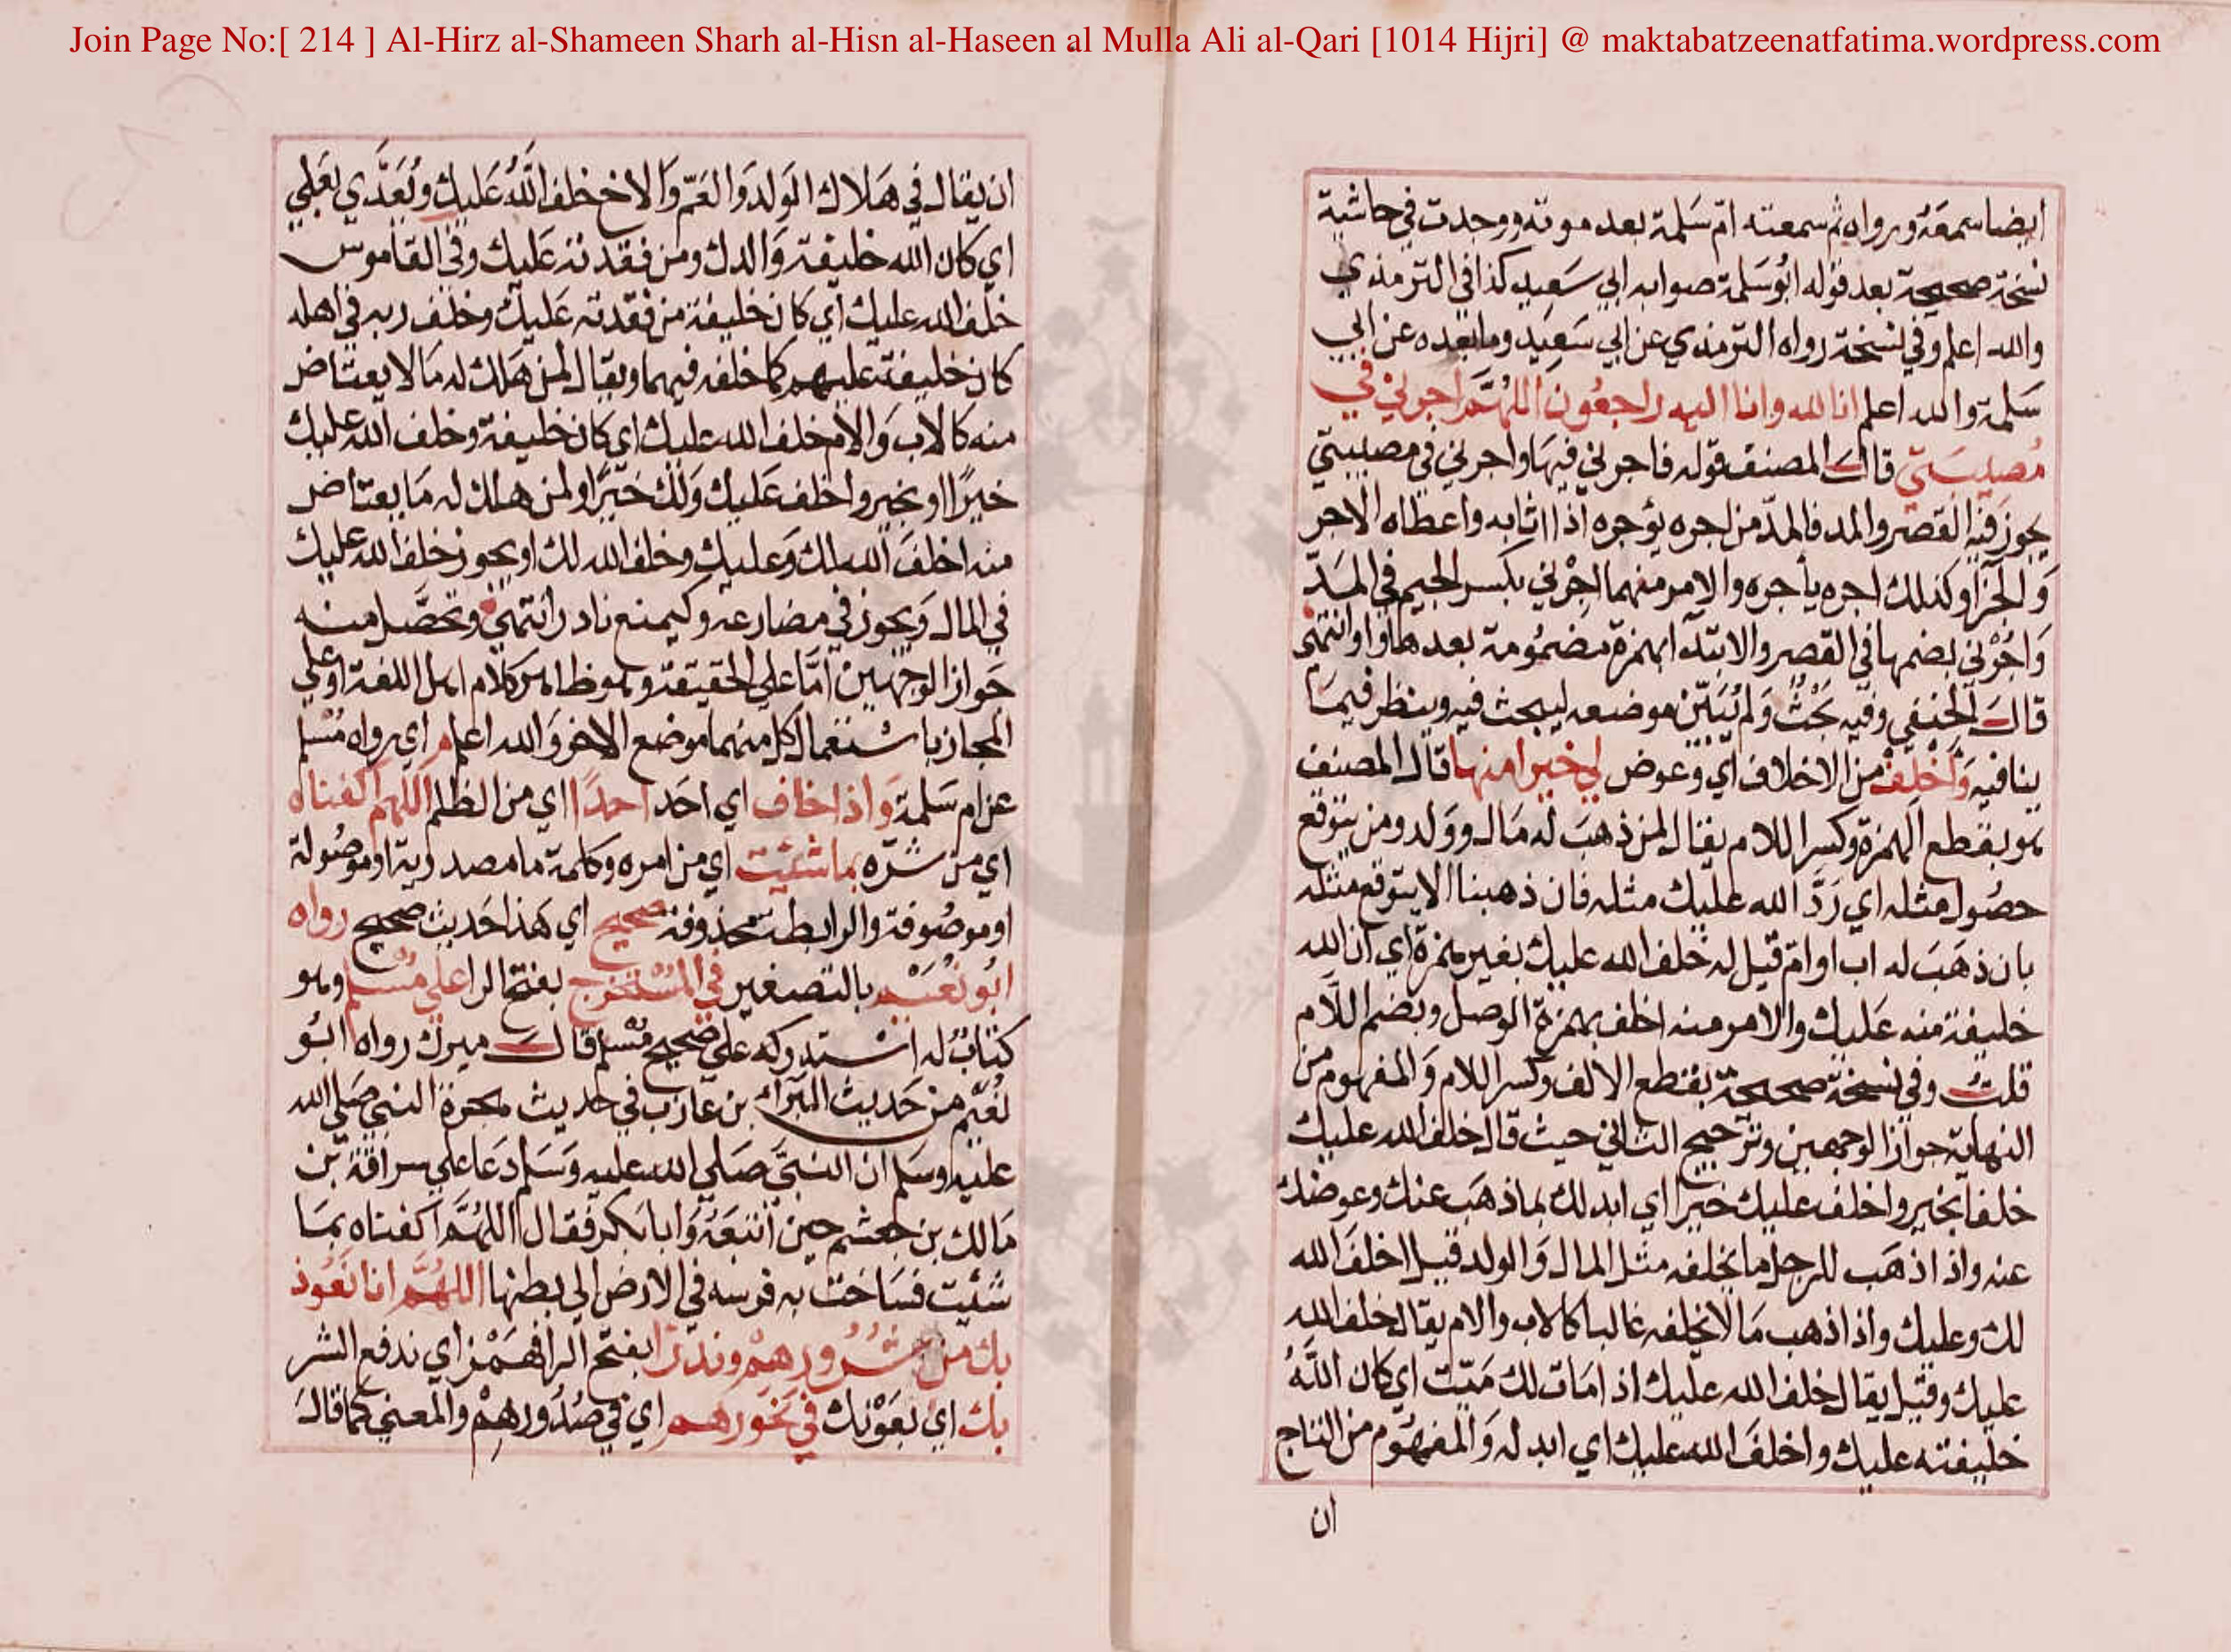 Join Page No:[ 214 ] Al-Hirz al-Shameen Sharh al-Hisn al-Haseen al Mulla Ali al-Qari [1014 Hijri] @ maktabatzeenatfatima.wordpress.com
ايضا سمعه ورواه ثم سمعته ام سلمة بعد موته ووجدت في حاشية
نسخة صحيحة بعد قوله ابو سلمة صوابه ابي سعيد كذا في الترمذي
والله اعلم وفي نسخة رواه الترمذي عن ابي سعيد وما بعده عن ابي
سلمة والله اعلم انا لله وانا اليه راجعون اللهم اجرني في
مصيبتي قال المصنف قوله فاجرني فيها واجرني في مصيبتي
يجوز فيه القصر والمد فالمد من اجره يؤجره اذا اثابه واعطاه الاجر
والجزا وكذلك اجره يأجره والامر منهما اجرني بكسر الجيم في المد
واجرني بضمها في القصر والابتدا بهمزة مضمومة بعدها واو انتهى
قال الحنفي وفيه بحث ولم يبين موضعه ليبحث فيه وينظر فيما
ينافيه واخلف من الاخلاف اي وعوض لي خيرا منها قال المصنف
هو بقطع الهمزة وكسر اللام يقال لمن ذهب له مال وولد ومن يتوقع
حصول مثله اي رد الله عليك مثله فان ذهبنا الا يتوقع مثله
بان ذهب له اب او ام قيل له خلف الله عليك بغير همزة اي ان الله
خليفة منه عليك والامر منه اخلف بهمزة الوصل وبضم اللام
قلت وفي نسخة صحيحة بقطع الالف وكسر اللام والمفهوم من
النهاية جواز الوجهين وترجيح الثاني حيث قال خلف الله عليك
خلفا بخير واخلف عليك خيرا اي ابدلك بما ذهب عنك وعوضك
عنه واذا ذهب للرجل ما يخلفه مثل المال والولد قيل اخلف الله
لك وعليك واذا ذهب ما لا يخلفه غالبا كالاب والام يقال خلف الله
عليك وقيل يقال خلف الله عليك اذ امات لك ميت اي كان الله
خليفته عليك واخلف الله عليك اي ابدله والمفهوم من التاج
ان
ان يقال في هلاك الولد والعم والاخ خلف الله عليك ويعدي بعلي
اي كان الله خليفة والدك ومن فقدته عليك وفي القاموس
خلف الله عليك اي كان خليفة من فقدته عليك وخلف ربه في اهله
كان خليفته عليهم كما خلفه فيهما ويقال لمن هلك له ما لا يعتاض
منه كالاب والام خلف الله عليك اي كان خليفة وخلف الله عليك
خيرا او بخير واخلف عليك ولك خيرا ولمن هلك له ما يعتاض
منه اخلف الله لك وعليك وخلف الله لك او يجوز خلف الله عليك
في المال ويجوز في مضارعه وكيمنع نادر انتهى وتحصل منه
جواز الوجهين اما على الحقيقة وهو ظاهر كلام اهل اللغة او على
المجاز باستعمال كل منهما موضع الاخر والله اعلم م اي رواه مسلم
عن ام سلمة واذا خاف اي احد احدا اي من الظلم اللهم اكفناه
اي من شره بما شئيت اي من امره وكلمة ما مصدرية او موصولة
او موصوفة والرابطة محذوفة صحيح اي هذا حديث صحيح رواه
ابو نعيم بالتصغير في المستخرج بفتح الرا على مسلم وهو
كتاب له استدركه على صحيح مسلم قال ميرك رواه ابو
نعيم من حديث البراء بن عازب في حديث هجرة النبي صلي الله
عليه وسلم ان النبي صلي الله عليه وسلم دعا على سراقة بن
مالك بن جعشم حين اتبعه وابا بكر فقال اللهم اكفناه بما
شئيت فساخت به فرسه في الارض الي بطنها اللهم انا نعوذ
بك من شرورهم وندرا بفتح الرا فهمز اي ندفع الشر
بك اي بعونك في نحورهم اي في صدورهم والمعني كما قال